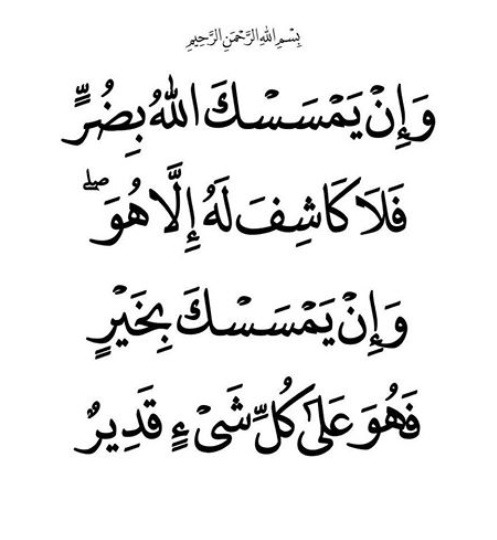 بِسْمِ اللهِ الرَّحْمَنِ الرَّحِيمِ
وَإِنْ يَمْسَسْكَ اللهُ بِضُرٍّ
فَلَا كَاشِفَ لَهُ إِلَّا هُوَ ۖ
وَإِنْ يَمْسَسْكَ بِخَيْرٍ
فَهُوَ عَلَىٰ كُلِّ شَىْءٍ قَدِيرٌ